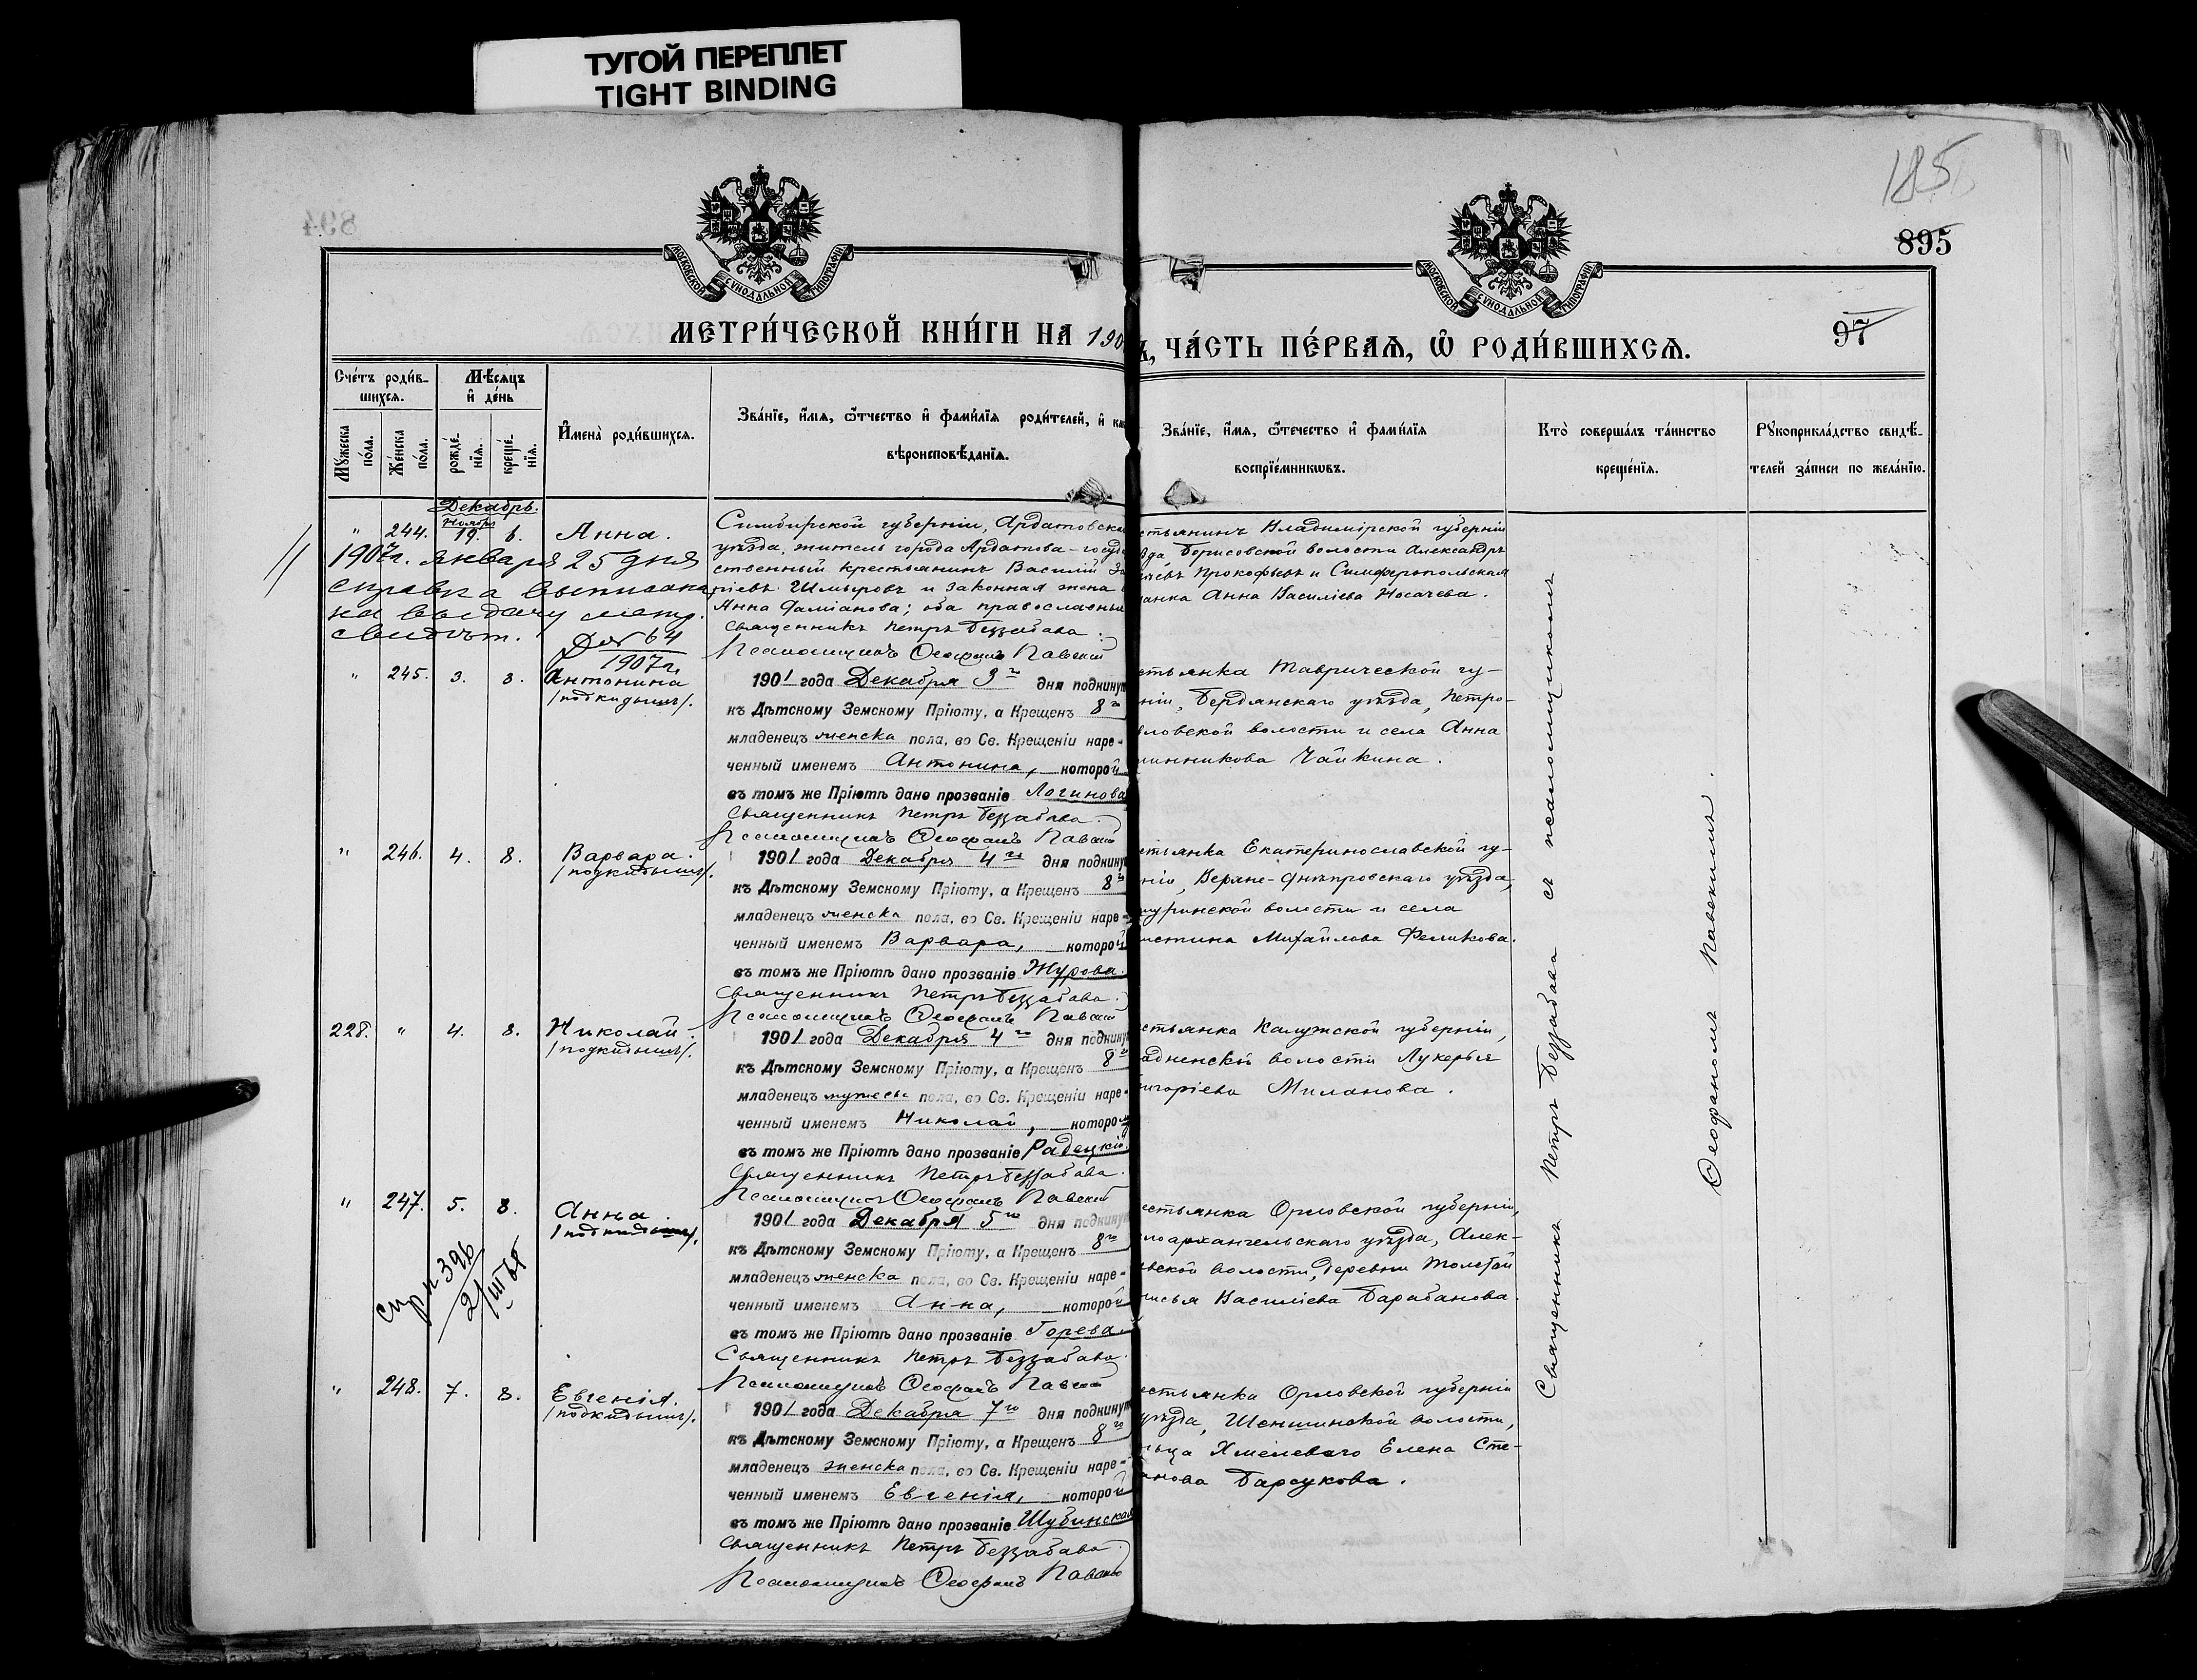 ТУГОЙ ПЕРЕПЛЕТ
TIGHT BINDING
185
895
97
894
МОСКОВСКОЙ СѴНОДАЛЬНОЙ ТИПОГРАФІИ
МОСКОВСКОЙ СѴНОДАЛЬНОЙ ТИПОГРАФІИ
МЕТРИ́ЧЕСКОЙ КНИ́ГИ НА 190
ЧА́СТЬ ПЕ́РВАѦ, Ѿ РОДИ́ВШИХСѦ.
Сче́тъ роди́в-
шихсѧ.
Мѣ́сѧцъ
и҆ де́нь
Мꙋ́жеска
по́ла.
Же́нска
по́ла.
рожде́-
нїѧ.
креще́-
нїѧ.
И҆мена̀ роди́вшихсѧ.
Зва́нїе, и҆́мѧ, ѻ҆́тчество и҆ фами́лїѧ роди́телей, и҆ как
вѣроисповѣ́данїѧ.
Зва́нїе, и҆́мѧ, ѻ҆́течество и҆ фами́лїѧ
воспрїе́мникѡвъ.
Кто̀ соверша́лъ та́инство
креще́нїѧ.
Рꙋкоприкла́дство свидѣ́-
телей за́писи по жела́нїю.
Декабрь.
Ноября
" 244. 19. 6. Анна.
Симбирской губерніи, Ардатовска
уѣзда, житель города Ардатова - госуда
ственный крестьянинъ Василій
ріевъ Шмыровъ и законная жена
Анна Даміанова; оба православные
Священникъ Петръ Беззабава.
Псаломщикъ Ѳеофанъ Павскій
стьянинъ Владимірской губерніи
зда Борисовской волости Александръ
Прокофьевъ и Симферопольская
щанка Анна Василіева Носачева.
1907 г. января 25 дня
справка выписана
на выдачу метр.
свидѣт.
Д № 64
1907 г.
" 245. 3. 8. Антонина
/подкидышъ/.
1901 года Декабря 3го дня подкинут
къ Дѣтскому Земскому Пріюту, а Крещенъ 8го
младенецъ женска пола, во Св. Крещеніи наре-
ченный именемъ Антонина, которой
въ томъ же Пріютѣ дано прозваніе Логинова
Священникъ Петръ Беззабава.
Псаломщикъ Ѳеофанъ Павскій
стьянка Таврической гу-
ніи, Бердянскаго уѣзда, Петро-
вловской волости и села Анна
Чайкина.
" 246. 4. 8. Варвара.
/подкидышъ/.
1901 года Декабря 4го дня подкинут
къ Дѣтскому Земскому Пріюту, а Крещенъ 8го
младенецъ женска пола, во Св. Крещеніи наре-
ченный именемъ Варвара, которой
въ томъ же Пріютѣ дано прозваніе Журова.
Священникъ Петръ Беззабава.
Псаломщикъ Ѳеофанъ Павскій
стьянка Екатеринославской гу-
ніи, Верхне-Днѣпровскаго уѣзда,
волости и села
истина Михайлова Феликова.
228. " 4. 8. Николай.
/подкидышъ/.
1901 года Декабря 4го дня подкинут
къ Дѣтскому Земскому Пріюту, а Крещенъ 8го
младенецъ мужеск пола, во Св. Крещеніи наре-
ченный именемъ Николай, котором
въ томъ же Пріютѣ дано прозваніе Радецкій.
Священникъ Петръ Беззабава.
Псаломщикъ Ѳеофанъ Павскій
стьянка Калужской губерніи,
волости Лукерья
игоріева Миланова.
" 247. 5. 8. Анна.
/подкидышъ/.
спр № 396
2/III 65
1901 года Декабря 5го дня подкинут
къ Дѣтскому Земскому Пріюту, а Крещенъ 8го
младенецъ женска пола, во Св. Крещеніи наре-
ченный именемъ Анна, которой
въ томъ же Пріютѣ дано прозваніе Горева.
Священникъ Петръ Беззабава.
Псаломщикъ Ѳеофанъ Павскій
естьянка Орловской губерніи,
лоархангельскаго уѣзда, Алек-
вской волости, деревни Толстой
Василіева Барабанова.
" 248. 7. 8. Евгенія.
/подкидышъ/.
1901 года Декабря 7го дня подкинут
къ Дѣтскому Земскому Пріюту, а Крещенъ 8го
младенецъ женска пола, во Св. Крещеніи наре-
ченный именемъ Евгенія, которой
въ томъ же Пріютѣ дано прозваніе Шубинская
Священникъ Петръ Беззабава
Псаломщикъ Ѳеофанъ Павскій
естьянка Орловской губерніи
уѣзда, Шеншинской волости,
ьца Хмелеваго Елена Сте-
анова Барсукова.
Священникъ Петръ Беззабава съ псаломщикомъ
Ѳеофаномъ Павскимъ.